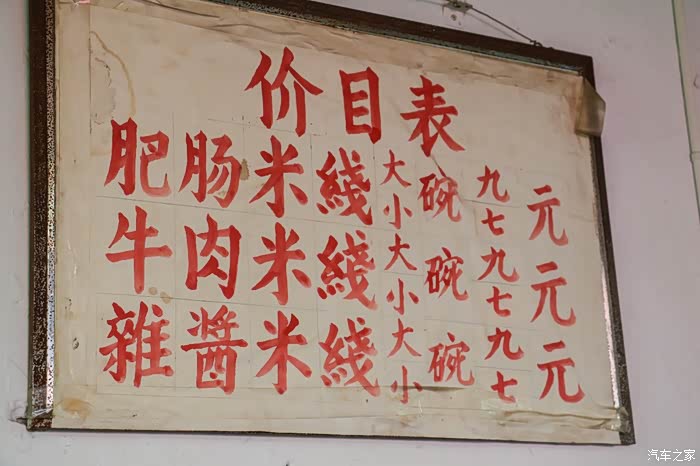 价目表
肥肠米线 大小碗 九七元
牛肉米线 大小碗 九七元
雜醬米綫 大小碗 九七元
汽车之家